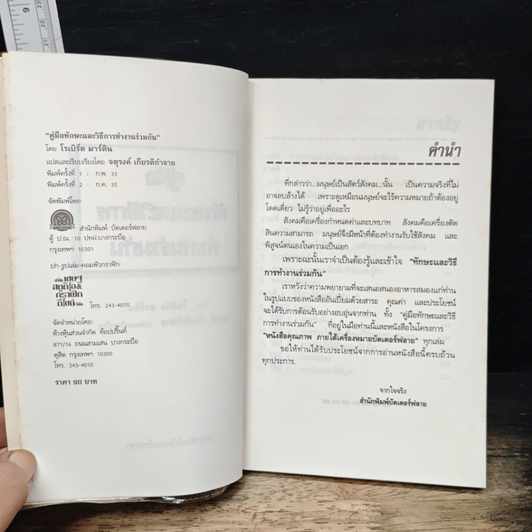 "คู่มือทักษะและวิธีการทำงานร่วมกัน"
โดย โรเบิร์ต มาร์ติน
แปลและเรียบเรียงโดย จตุรงค์ เกียรติกำจาย
พิมพ์ครั้งที่ 1 : ก.พ. 33
พิมพ์ครั้งที่ 2 : ก.ค. 35
จัดพิมพ์โดย:
สำนักพิมพ์ บัตเตอร์ฟลาย
ตู้ ป.ณ. 10 ปทฝ.บางกระบือ
กรุงเทพฯ 10301
ปก-รูปเล่ม-คอมพิวกราฟิก:
โทร. 243-4010
จัดจำหน่ายโดย:
ห้างหุ้นส่วนจำกัด ท้อปปิ้นท์
871/14 ถนนสามเสน บางกระบือ
ดุสิต กรุงเทพฯ 10300
โทร. 243-4010
ราคา ๘๘ บาท
คำนำ
ที่กล่าวว่า มนุษย์เป็นสัตว์สังคม นั้น เป็นความจริงที่ไม่
อาจลบล้างได้ เพราะดูเหมือนมนุษย์จะไร้ความหมายถ้าต้องอยู่
โดดเดี่ยว ไม่รู้ว่าอยู่เพื่ออะไร
สังคมคือเครื่องกำหนดค่าและบทบาท สังคมคือเครื่องตัด
สินความสามารถ มนุษย์จึงมีหน้าที่ต้องทำงานรับใช้สังคม และ
พิสูจน์ตนเองในความเป็นเอก
เพราะฉะนั้นเราจำเป็นต้องรู้และเข้าใจ "ทักษะและวิธี
การทำงานร่วมกัน"
เราหวังว่าความพยายามที่จะเสนอสนองอาหารสมองแก่ท่าน
ในรูปแบบของหนังสืออันเปี่ยมด้วยสาระ คุณค่า และประโยชน์
จะได้รับการต้อนรับอย่างอบอุ่นจากท่าน ทั้ง "คู่มือทักษะและวิธี
การทำงานร่วมกัน" ที่อยู่ในมือท่านนี้และหนังสือในโครงการ
"หนังสือคุณภาพ ภายใต้เครื่องหมายบัตเตอร์ฟลาย" ทุกเล่ม
ขอให้ท่านได้รับประโยชน์จากการอ่านหนังสือนี้ครบถ้วน
ทุกประการ.
จากใจจริง
สำนักพิมพ์บัตเตอร์ฟลาย